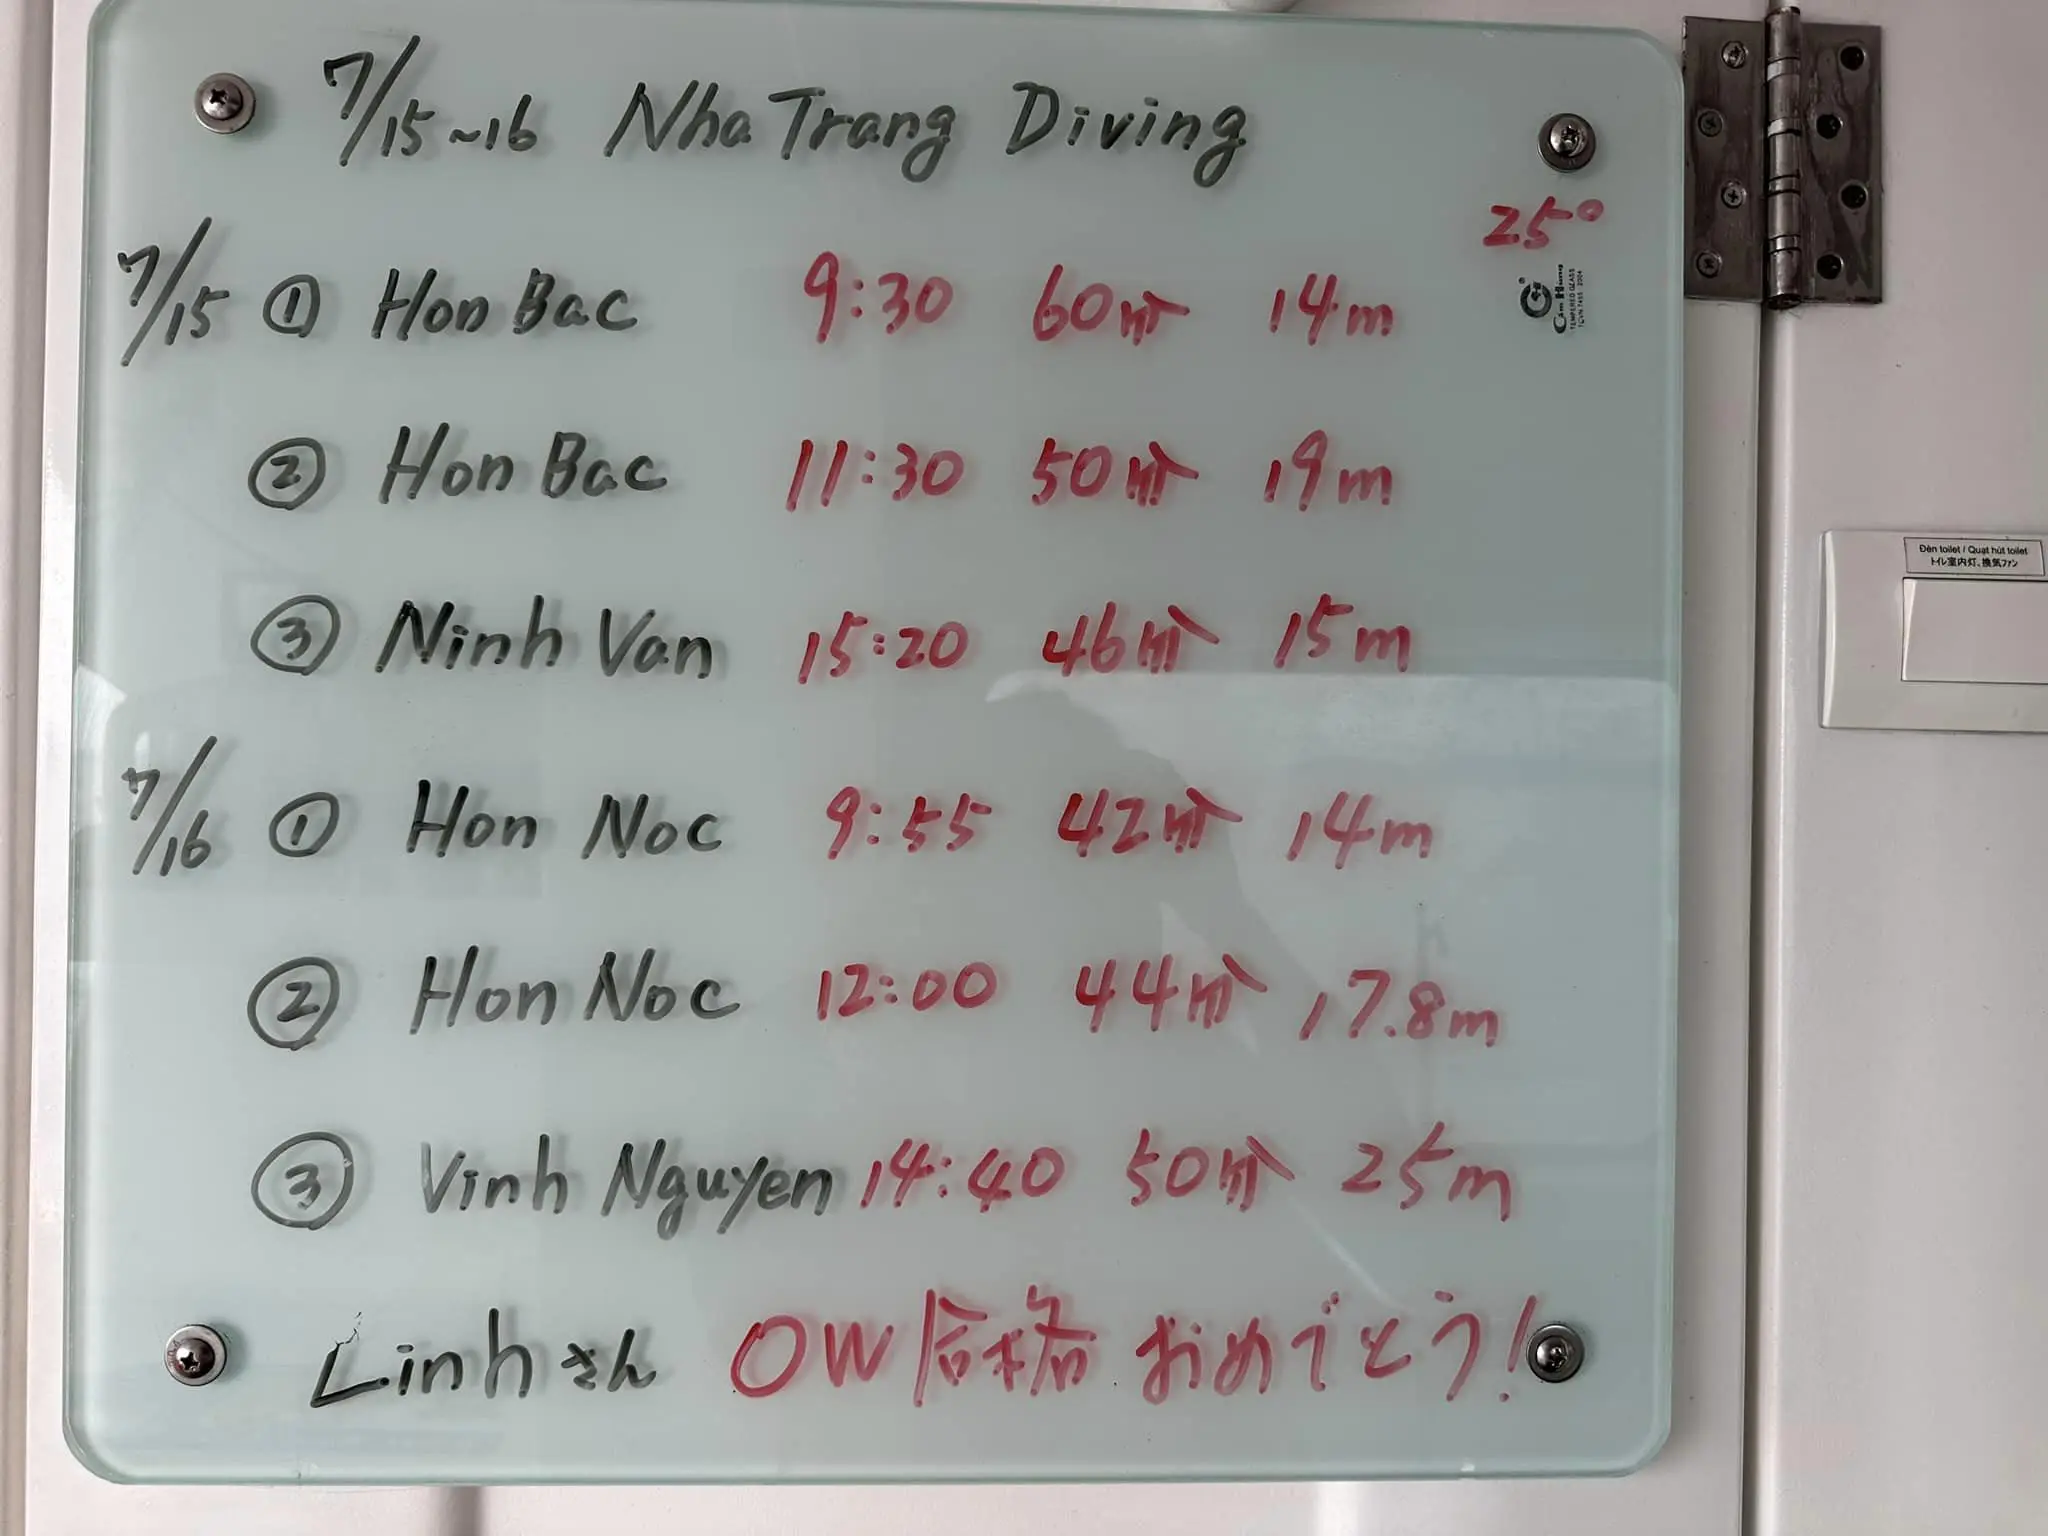 7/15~16 Nha Trang Diving
25°
7/15 ① Hon Bac 9:30 60分 14m
② Hon Bac 11:30 50分 19m
③ Ninh Van 15:20 46分 15m
7/16 ① Hon Noc 9:55 42分 14m
② Hon Noc 12:00 44分 17.8m
③ Vinh Nguyen 14:40 50分 25m
Linhさん OW合格おめでとう!
TEMPERED GLASS
Đèn toilet / Quạt hút toilet
トイレ室内灯、換気ファン